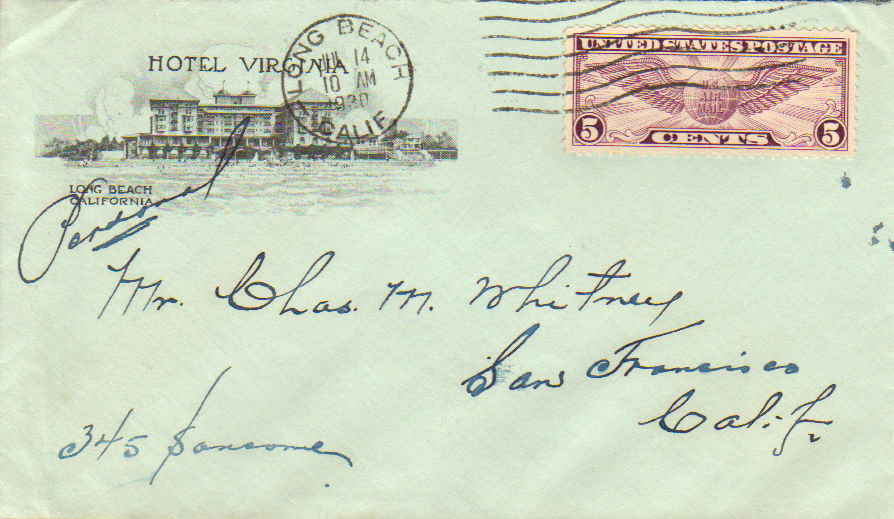 HOTEL VIRGINIA
LONG BEACH
JUL 14
10 AM
1930
CALIF.
UNITED STATES POSTAGE
5 CENTS 5
LONG BEACH
CALIFORNIA
Personal
Mr. Chas. M. Whitney
San Francisco
Calif.
345 Sansome